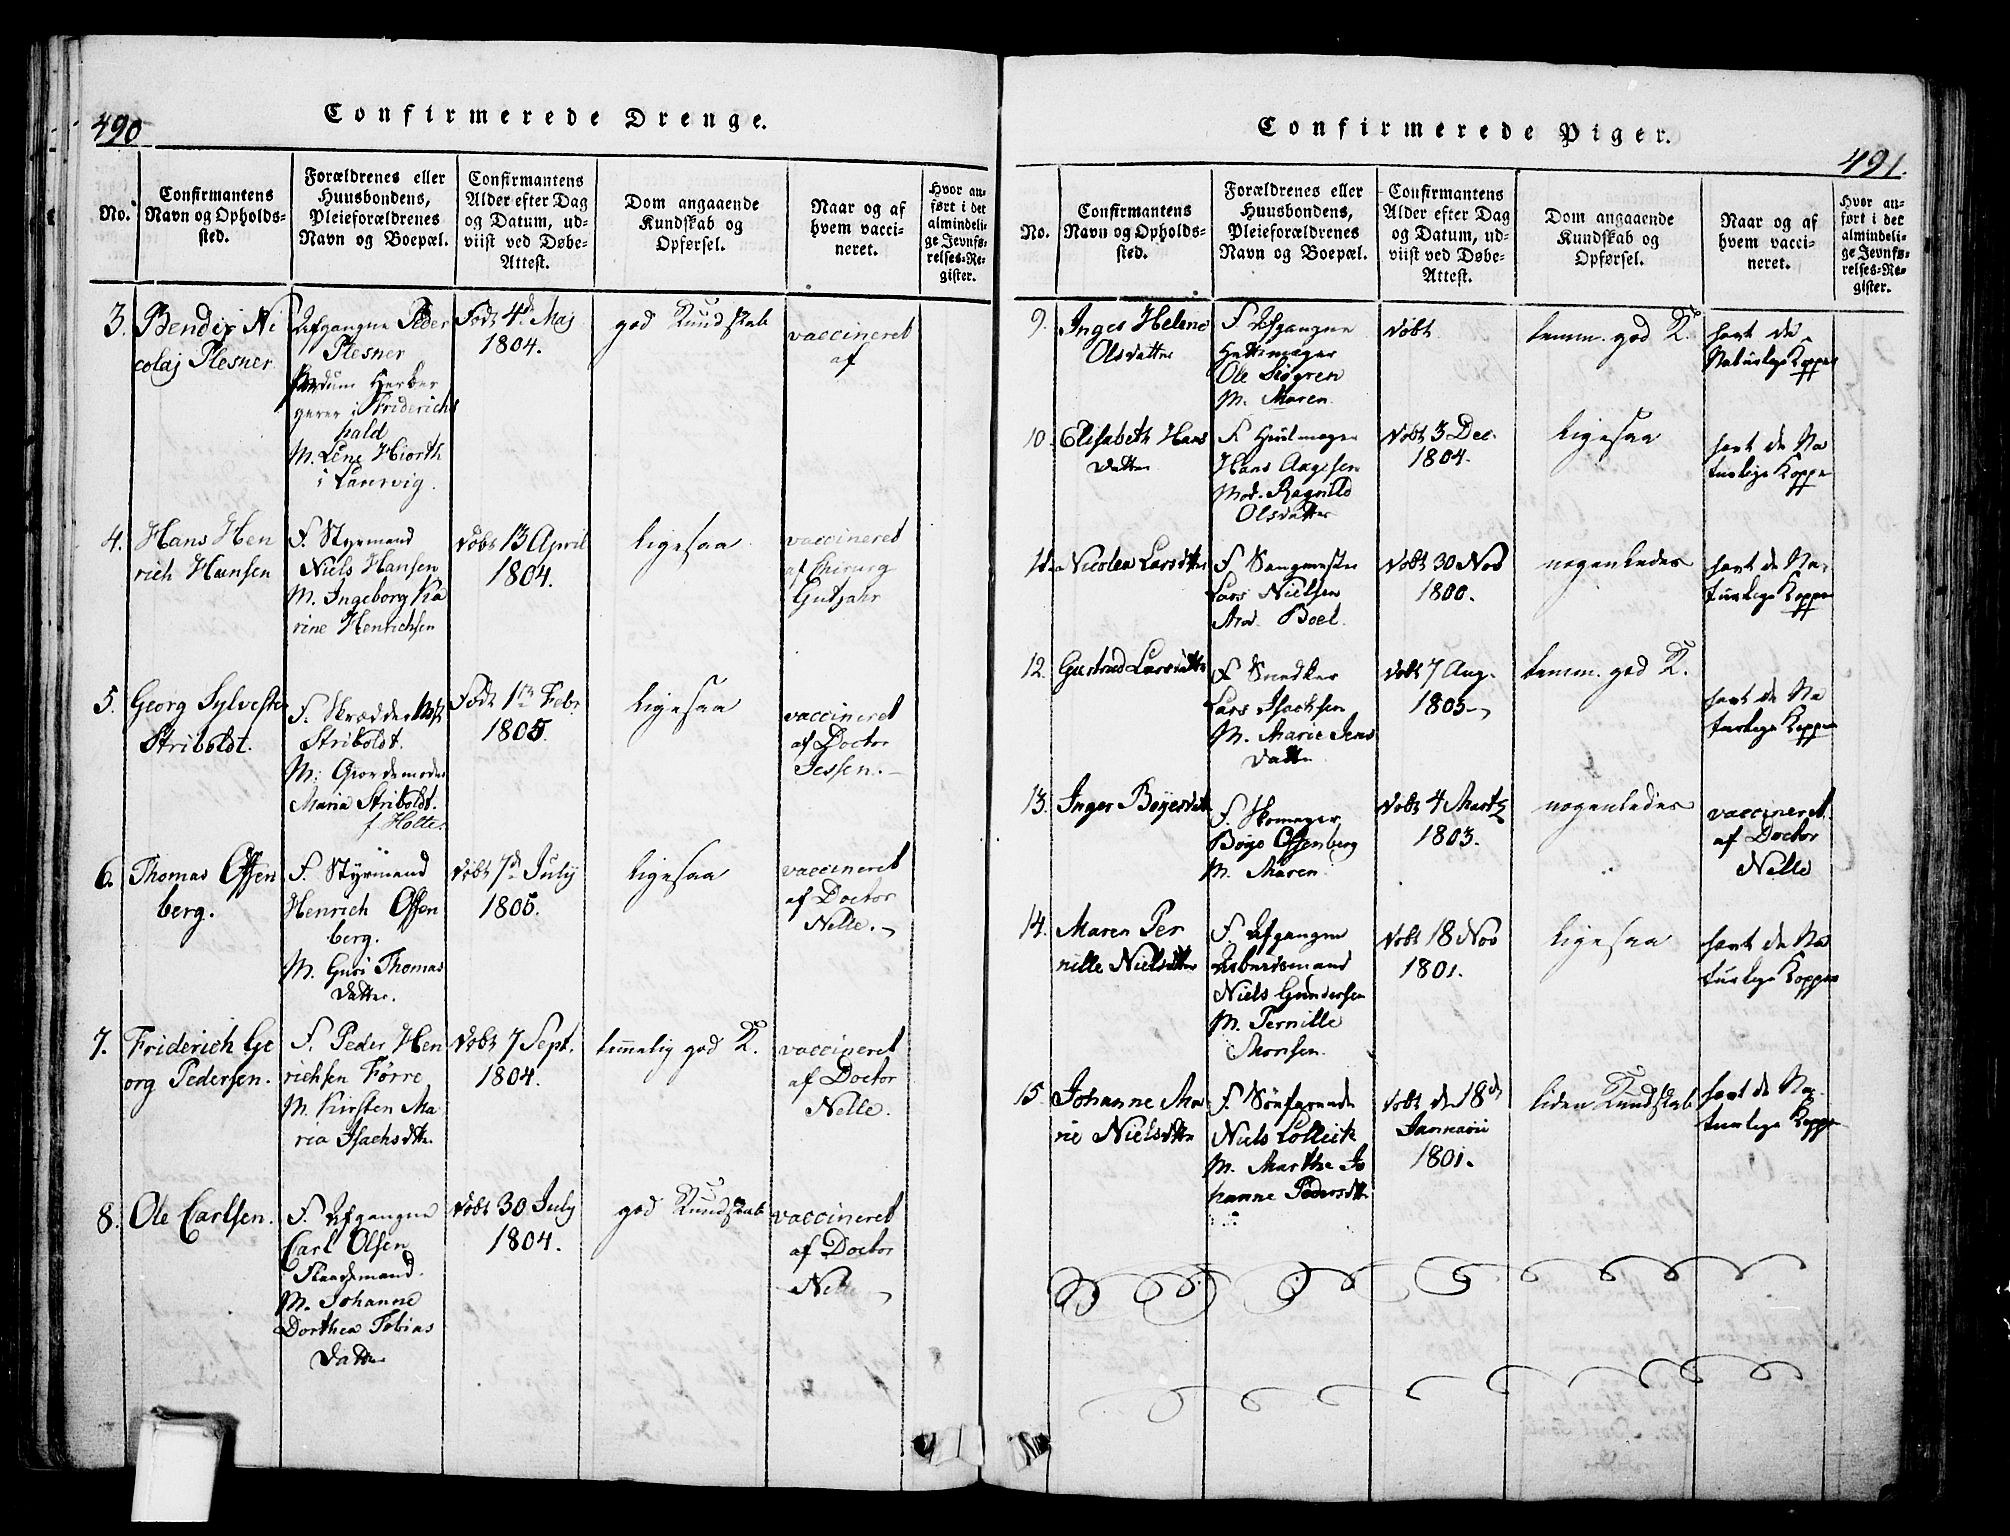 490
Confirmerede Drenge.
No.
Confirmantens
Navn og Opholds-
sted.
Forældrenes eller
Huusbondens,
Pleieforældrenes
Navn og Boepæl.
Confirmantens
Alder efter Dag
og Datum, ud-
viist ved Døbe-
Attest.
Dom angaaende
Kundskab og
Opførsel.
Naar og af
hvem vacci-
neret.
Hvor an-
ført i det
almindeli-
ge Jevnfø-
relses-Re-
gister.
3.
Bendix Ni
colaj Plesner
Afgangne Peder
Plesner
fordum Herber
gerer i Friderichs
hald
M. Lene Hiorth
i Laurvig.
Født 4de Maj
1804.
god Kundskab
vaccineret
af
4.
Hans Hen
rich Hansen
F. Styrmand
Niels Hansen
M. Ingeborg Ka
rine Henrichsen
døbt 13 April
1804.
ligesaa
vaccineret
af Chirurg
Gutjahr
5.
Georg Sylvester
Striboldt.
F. Skrædder
Striboldt.
M: Giordemoder
Maria Striboldt.
f. Holter
Født 1ste Febr
1805.
ligesaa
vaccineret
af Doctor
Jessen.
6.
Thomas Offen
berg.
F. Styrmand
Henrich Offen
berg.
M. Guri Thomas
datter.
døbt 7de July
1805.
ligesaa
vaccineret
af Doctor
Nelle.
7.
Friderich Ge
org Pedersen.
F. Peder Hen
richsen Førre
M. Kirsten Ma
ria Isachsdtr.
døbt 7 Sept.
1804.
temmelig god K.
vaccineret
af Doctor
Nelle.
8.
Ole Carlsen.
F. Afgangne
Carl Olsen
Flaademand.
M. Johanne
Dorthea Tobias
datter
døbt 30 July
1804.
god Kundskab
vaccineret
af Doctor
Nelle
Confirmerede Piger.
491.
No.
Confirmantens
Navn og Opholds-
sted.
Forældrenes eller
Huusbondens,
Pleieforældrenes
Navn og Boepæl.
Confirmantens
Alder efter Dag
og Datum, ud-
viist ved Døbe-
Attest.
Dom angaaende
Kundskab og
Opførsel.
Naar og af
hvem vacci-
neret.
Hvor an-
ført i det
almindeli-
ge Jevnfø-
relses-Re-
gister.
9.
Inger Helene
Olsdatter
F. Afgangne
Hattemager
Ole Siøgren
M. Maren.
døbt
temm. god K.
havt de
Naturlige Kopper
10.
Elisabeth Hans
datter
F. Hiulmager
Hans Aagesen
Mod. Ragnild
Olsdatter
døbt 3 Dec.
1804.
ligesaa
havt de Na
turlige Kopper
11.
Nicolea Larsdtter
F. Sangmester
Lars Nielsen
Mod. Boel.
døbt 30 Nov
1800.
nogenledes
havt de Na-
turlige Kopper
12.
Gurstrud Larsdatter
F. Snedker
Lars Isachsen
M. Marie Jens
datter
døbt 7 Aug.
1803.
temm. god K.
havt de Na
turlige Kopper
13.
Inger Bøyesdatter
F. Skomager
Bøye Offenberg
M. Maren.
døbt 4 Martz
1803.
nogenledes
vaccineret
af Doctor
Nelle
14.
Maren Per
nille Nielsdtter
F. Afgangne
Arbeidsmand
Niels Gundersen
M. Pernille
Monsen.
døbt 18 Nov
1801.
ligesaa
havt de Na
turlige Kopper
15.
Johanne Ma
rie Nielsdtter
F. Søefarende
Niels
M. Marthe Jo
hanne Pedersdtr
døbt de 18de
Januarii
1801.
liden Kundskab
havt de Na-
turlige Kopper